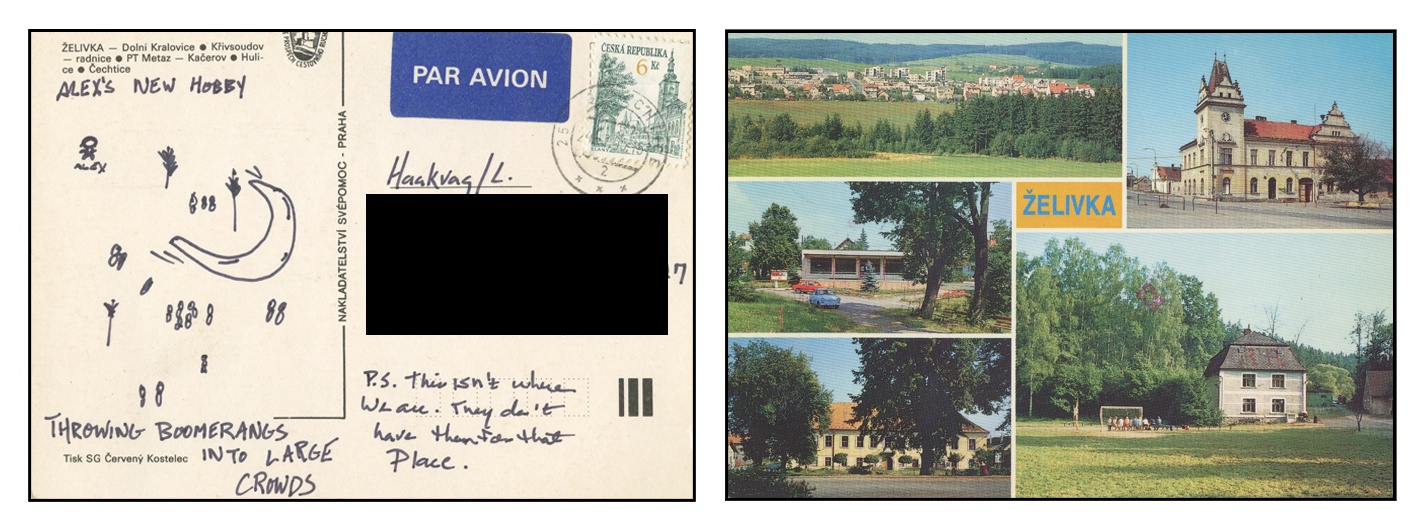 ŽELIVKA — Dolní Kralovice ● Křivsoudov
— radnice ● PT Metaz — Kačerov ● Huli-
ce ● Čechtice
ALEX'S NEW HOBBY
ALEX
THROWING BOOMERANGS
INTO LARGE
CROWDS
Tisk SG Červený Kostelec
NAKLADATELSTVÍ SVÉPOMOC - PRAHA
PAR AVION
ČESKÁ REPUBLIKA
6 Kč
Haakvag/L.
7
P.S. This isn't where
we are. They don't
have them for that
Place.
ŽELIVKA